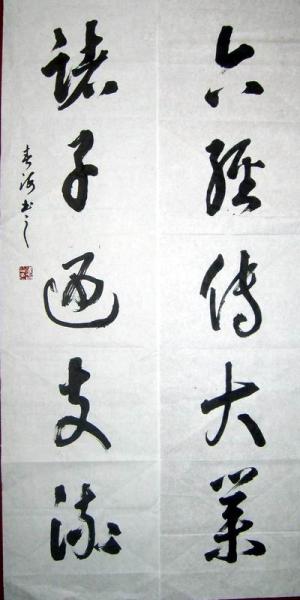 六經傳大業
諸子通支流
春海书之